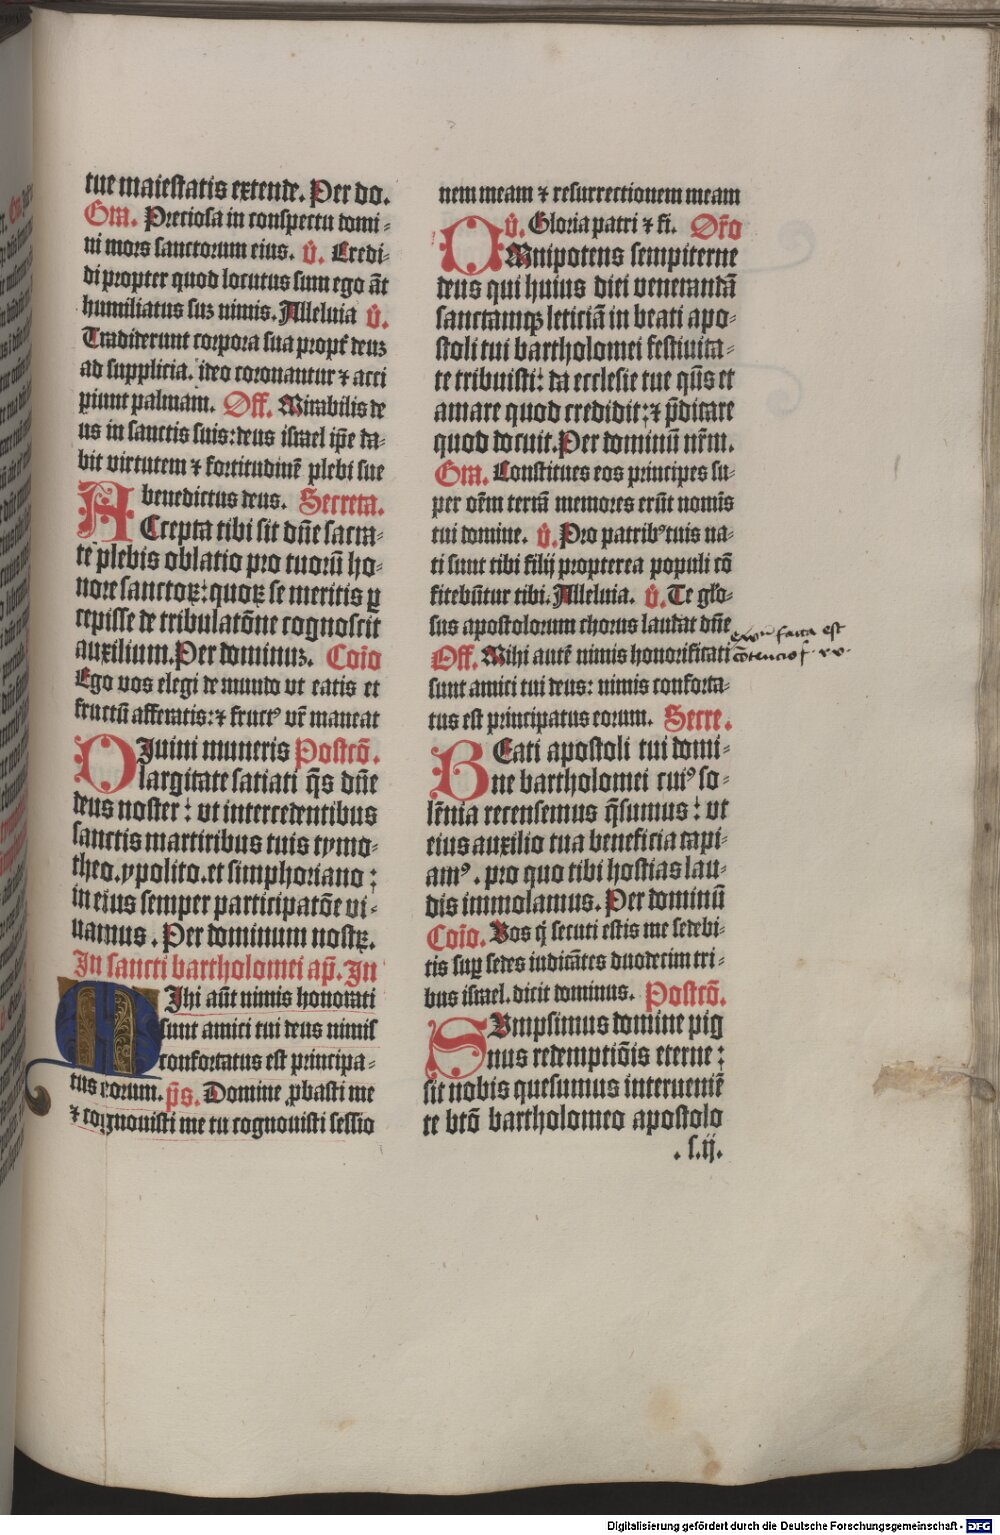 tue maiestatis extende. Per do.
Gra. Preciosa in conspectu domi-
ni mors sanctorum eius. v̄. Credi-
di propter quod locutus sum ego āt
humiliatus suꝫ nimis. Alleluia v̄.
Tradiderunt corpora sua propt̄ deuꝫ
ad supplicia. ideo coronantur ⁊ acci
piunt palmam. Off. Mirabilis de
us in sanctis suis: deus israel ip̄e da-
bit virtutem ⁊ fortitudinē plebi sue
benedictus deus. Secreta.
ACcepta tibi sit dn̄e sacra-
te plebis oblatio pro tuorū ho-
nore sanctoꝝ: quoꝝ se meritis ꝑ
cepisse de tribulatōne cognoscit
auxilium. Per dominuꝫ. Cōio
Ego vos elegi de mundo vt eatis et
fructū afferatis: ⁊ fructꝰ vr̄ maneat
DIuini muneris Postcō.
largitate satiati q̄s dn̄e
deus noster: vt intercedentibus
sanctis martiribus tuis tymo-
theo. ypolito. et simphoriano:
in eius semper participatōe vi-
uamus. Per dominum nostꝝ.
In sancti bartholomei ap̄. In
MIhi aūt nimis honorati
sunt amici tui deus nimis
confortatus est principa-
tus eorum. p̄s. Domine ꝓbasti me
⁊ cognouisti me tu cognouisti sessio
nem meam ⁊ resurrectionem meam
v̄. Gloria patri ⁊ fi. Or̄o
OMnipotens sempiterne
deus qui huius diei venerandā
sanctamqꝫ leticiā in beati apo-
stoli tui bartholomei festiuita-
te tribuisti: da ecclesie tue q̄us et
amare quod credidit: ⁊ p̄dicare
quod docuit. Per dominū nr̄m.
Gra. Constitues eos principes su-
per oēm terrā memores erūt nomīs
tui domine. v̄. Pro patribꝰ tuis na-
ti sunt tibi filij propterea populi cō
fitebūtur tibi. Alleluia. v̄. Te glo-
sus apostolorum chorus laudat dn̄e
Off. Mihi autē nimis honorificati
sunt amici tui deus: nimis conforta-
tus est principatus eorum. Secre.
BEati apostoli tui domi-
ne bartholomei cuiꝰ so-
lēnia recensemus q̄sumus: vt
eius auxilio tua beneficia capi-
amꝰ. pro quo tibi hostias lau-
dis immolamus. Per dominū
Cōio. Vos q̄ secuti estis me sedebi-
tis suꝑ sedes iudicātes duodecim tri-
bus israel. dicit dominus. Postcō.
SVmpsimus domine pig
nus redemptiōis eterne:
sit nobis quesumus interueniē
te btō bartholomeo apostolo
. s.ij.
facta est
Digitalisierung gefördert durch die Deutsche Forschungsgemeinschaft - DFG